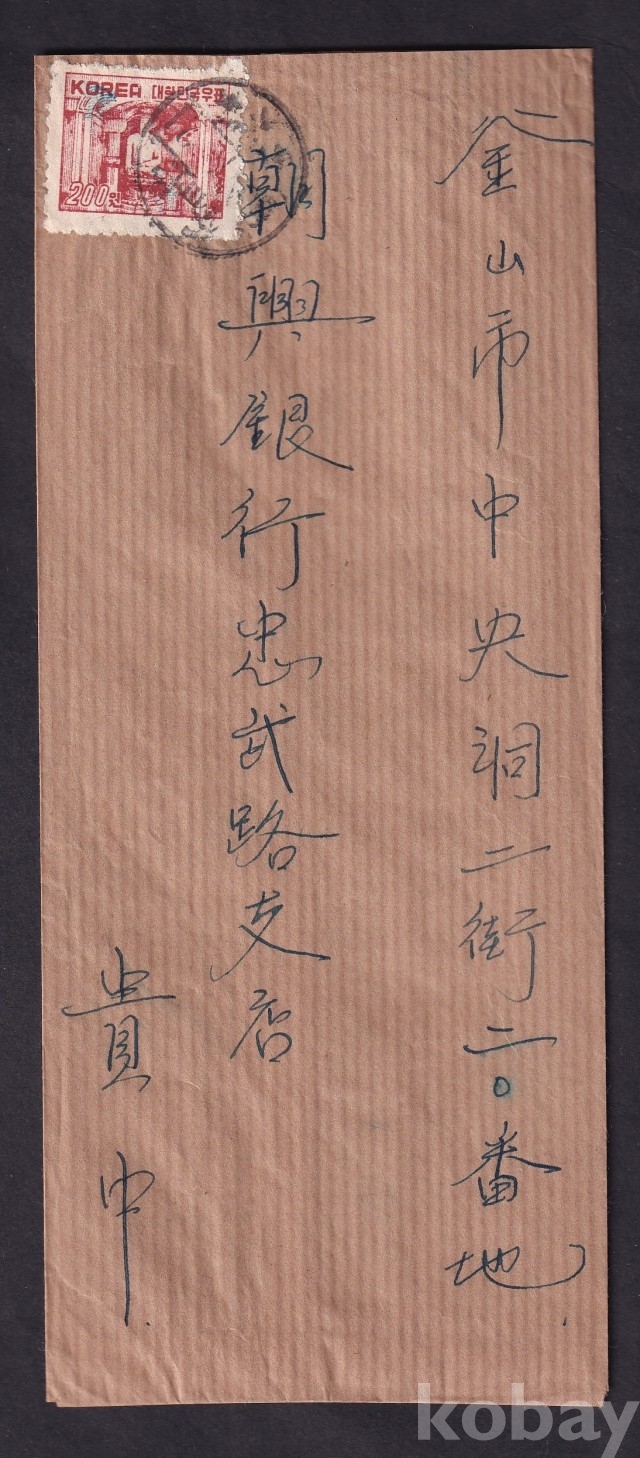 KOREA 대한민국우표
200원
釜山市中央洞二街二〇番地
朝興銀行忠武路支店
貴中
kobay